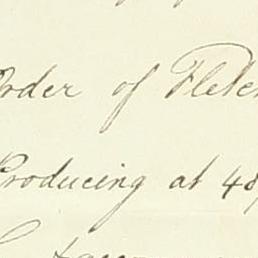 Order of Fletch
Producing at 48